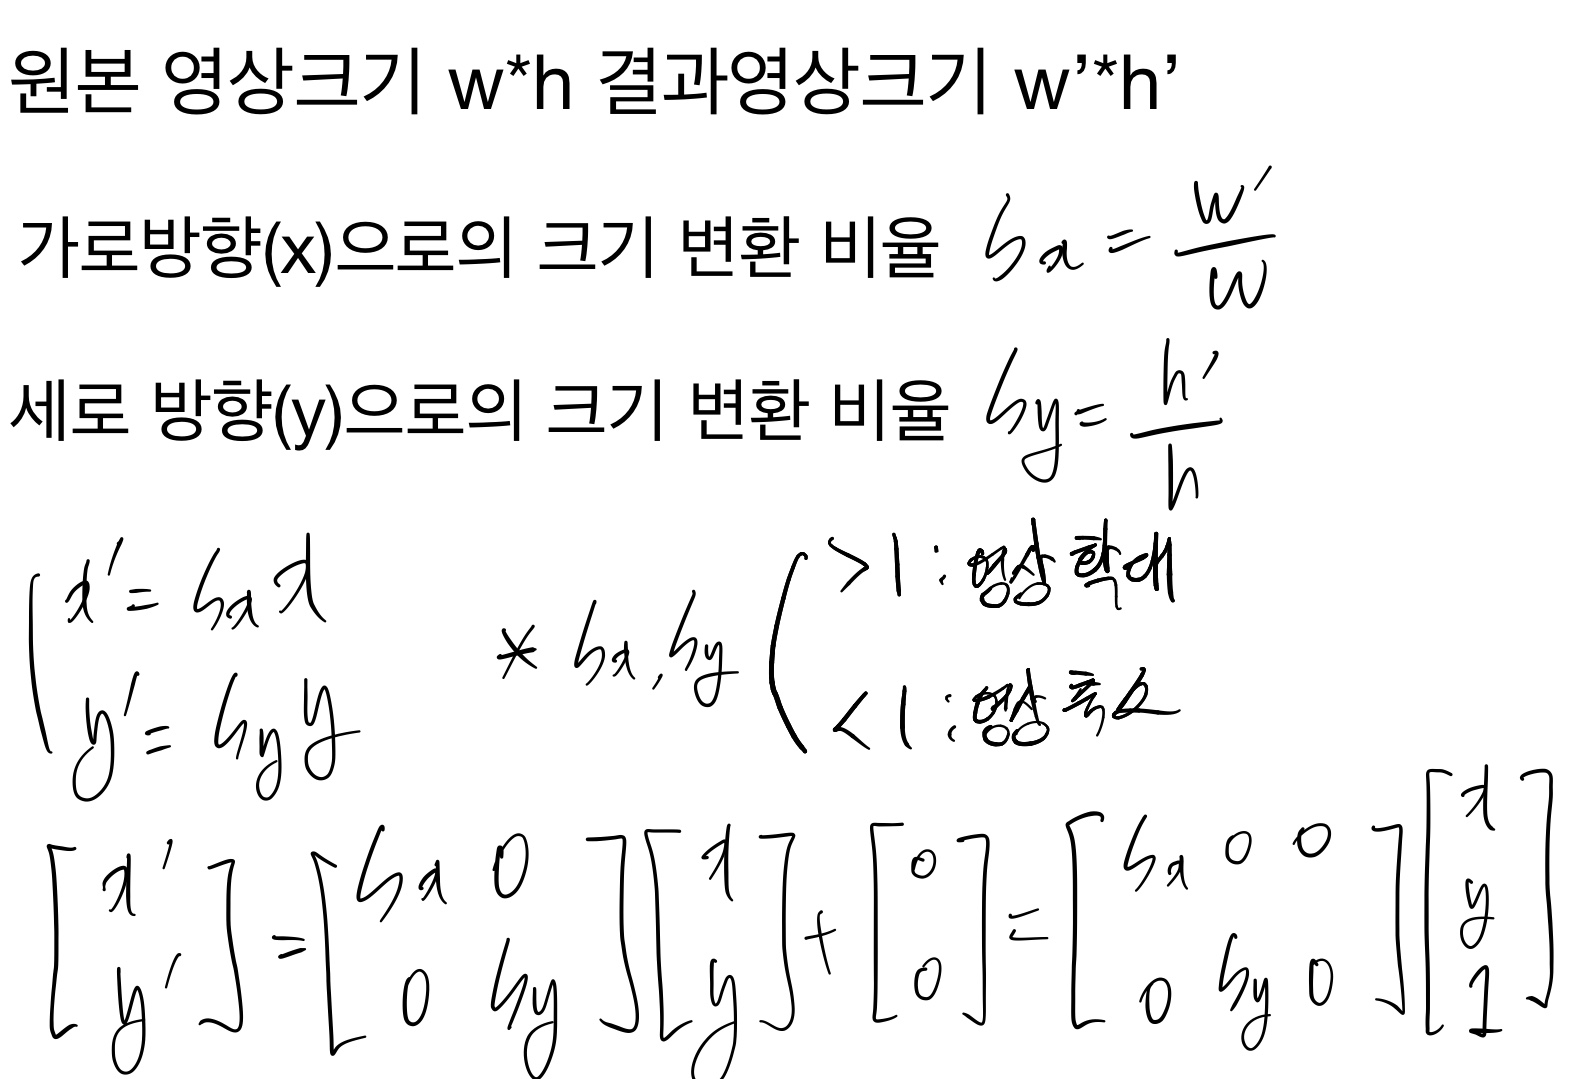 원본 영상크기 w*h 결과영상크기 w’*h’
가로방향(x)으로의 크기 변환 비율 Sx = w'/w
세로 방향(y)으로의 크기 변환 비율 Sy = h'/h
( x' = Sx x
y' = Sy y
* Sx, Sy ( > 1 : 영상 확대
< 1 : 영상 축소
[x' y'] = [Sx 0 0 Sy] [x y] + [0 0] = [Sx 0 0 0 Sy 0] [x y 1]